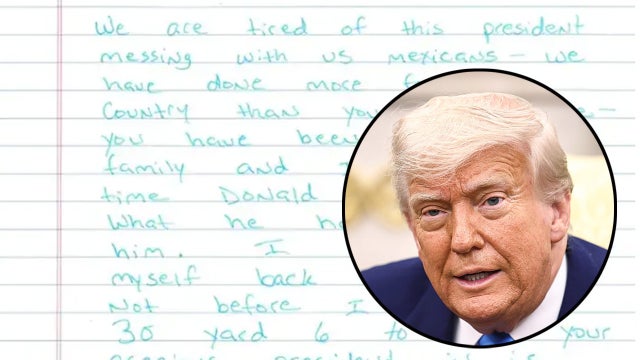 We are tired of this president
messing with us mexicans – we
have done more
Country than you
you have been
family and
time Donald
What he
him. I
myself back
Not before I
30 yard 6 to your
president